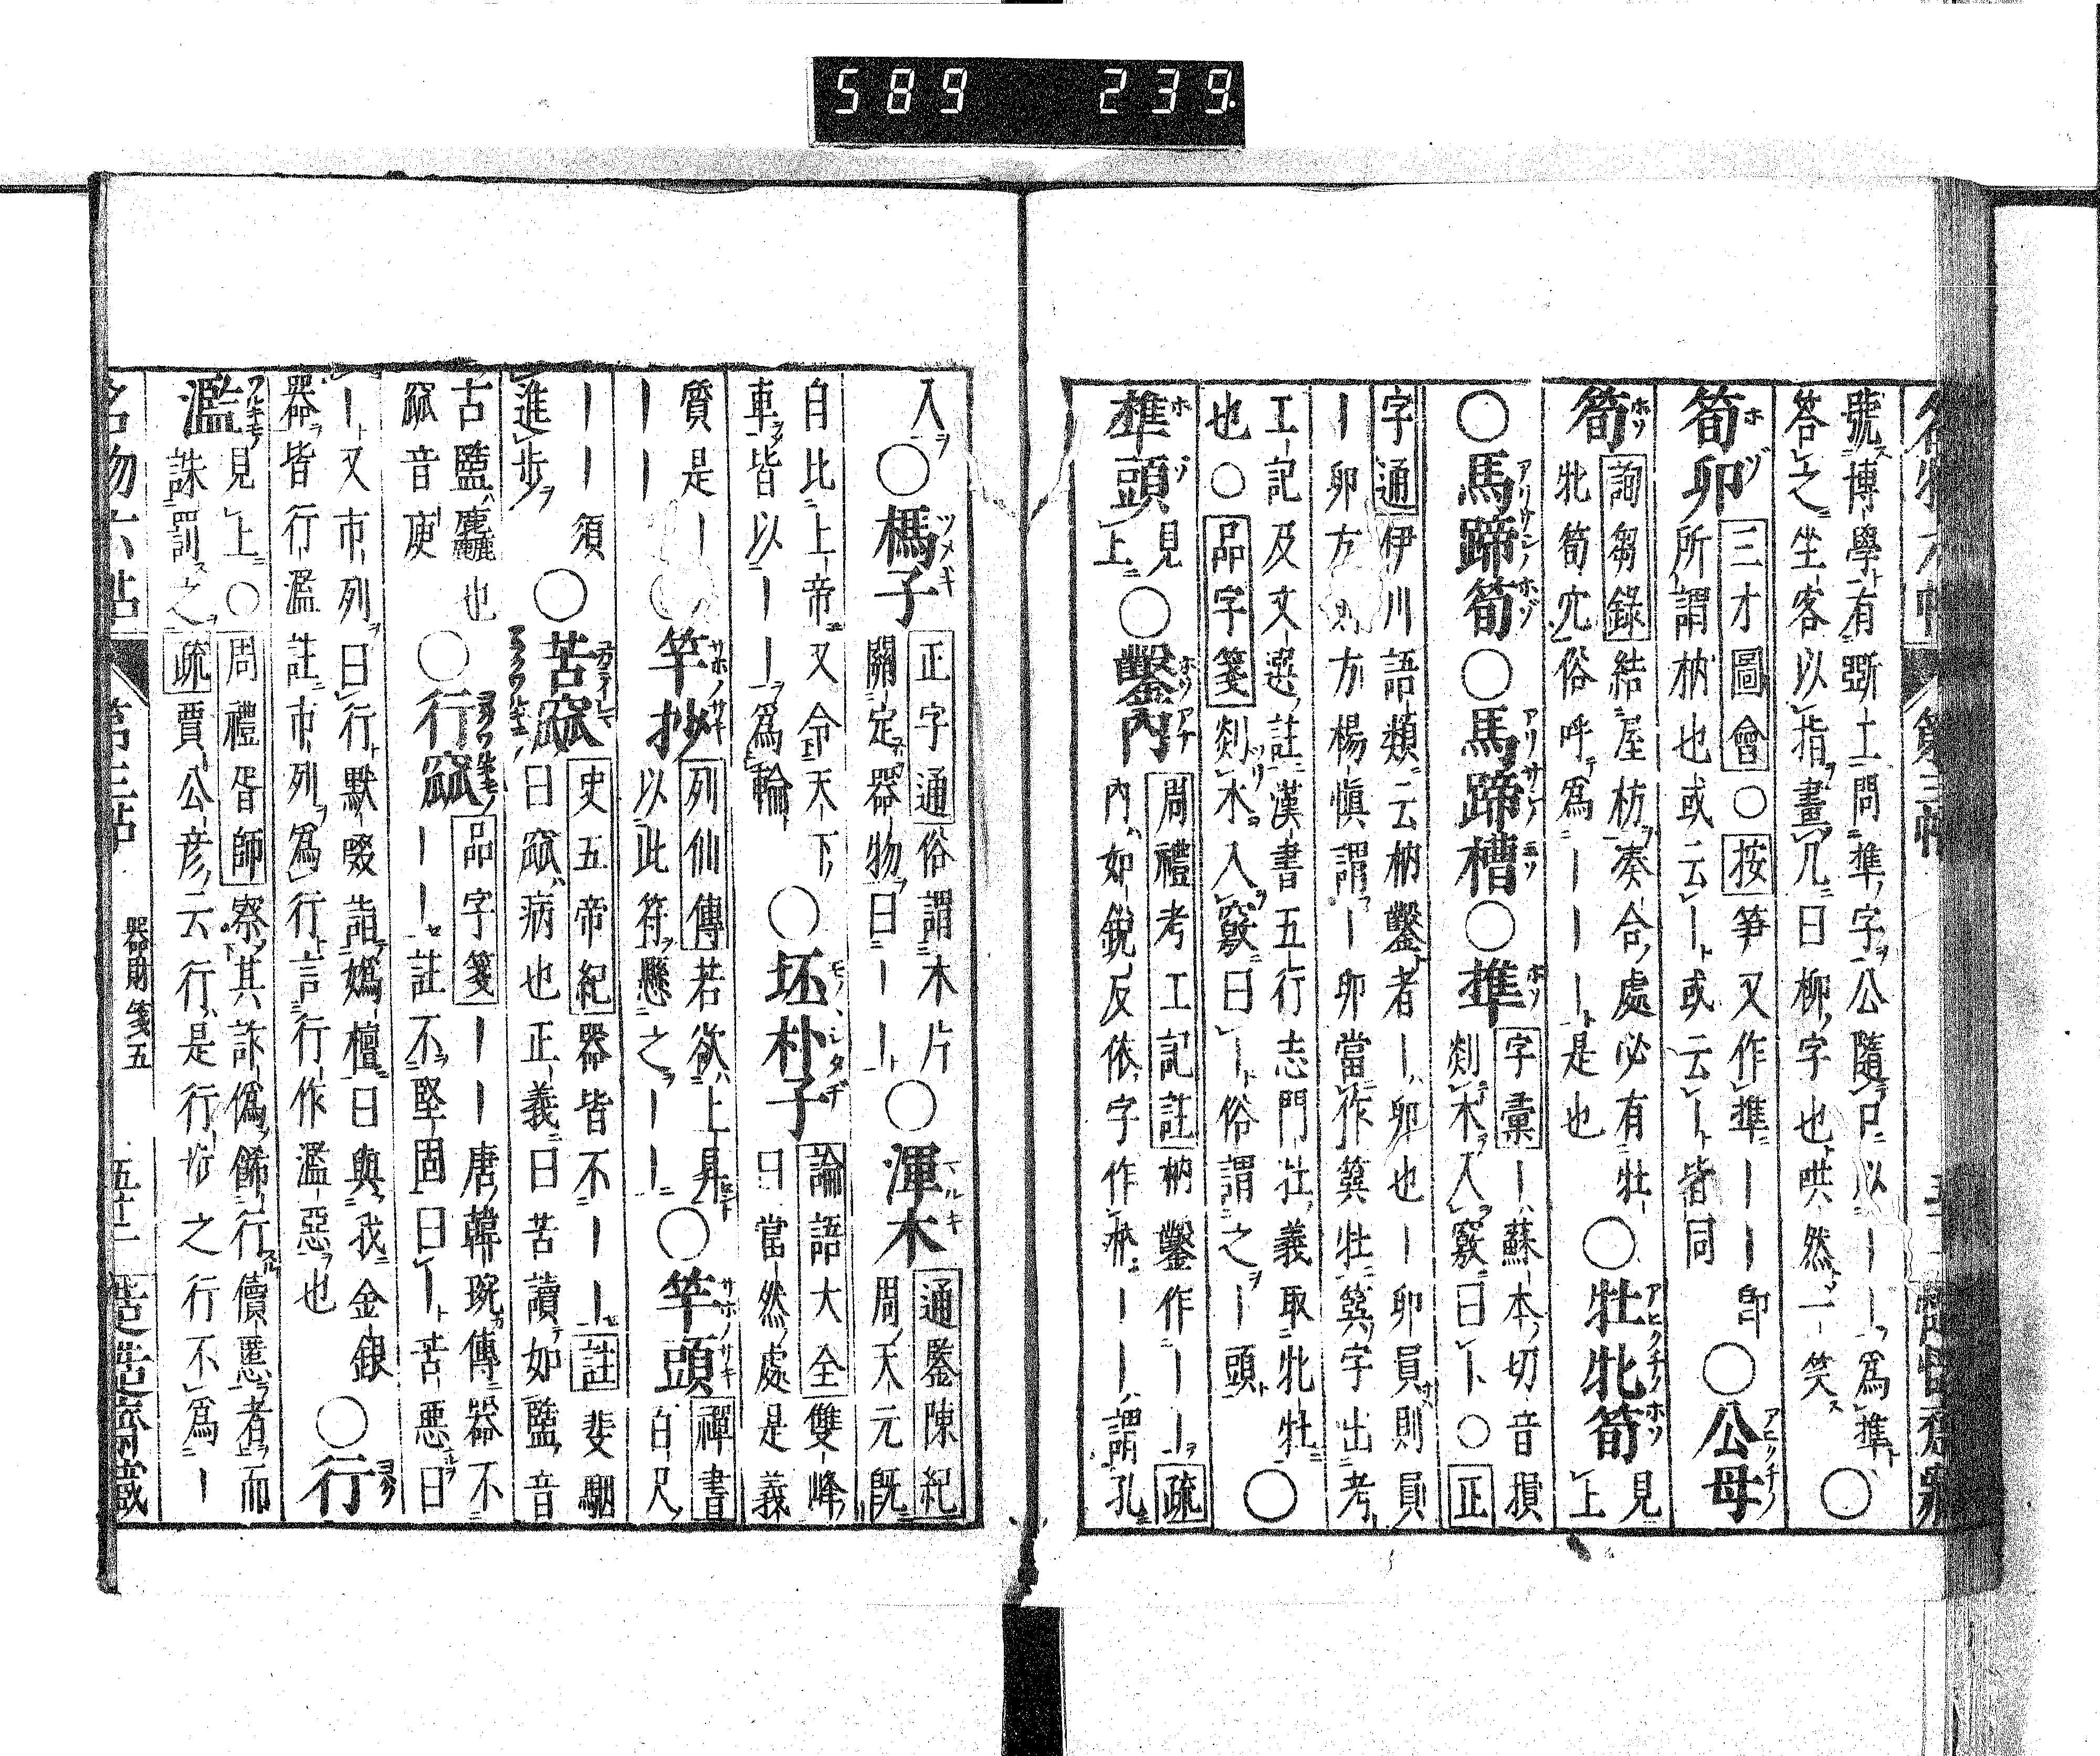 589 239
號博學有斲士問準字公隨口以丨丨爲準
答之坐客以指畫几曰柳字也哄然一笑〇
筍卯 三才圖會〇按筍又作準丨丨卽
所謂枘也或云丨或云丨皆同 〇公母
筍 詢芻錄結屋枋湊合處必有牡
牝筍穴俗呼爲丨丨丨是也 〇牡牝筍 見上
〇馬蹄筍〇馬蹄槽〇準 字彙丨蘇本切音損
剡木入竅曰丨〇正
字通伊川語類云枘鑿者丨卯也丨卯員則員
丨卯方則方楊愼謂丨卯當作簨牡簨字出考
工記及文選註漢書五行志門牡義取牝牡
也〇品字箋剡木入竅曰丨俗謂之丨頭 〇
準頭 見上〇鑿內 周禮考工記註枘鑿作丨丨疏
內如銳反依字作枘丨丨謂孔
入〇榪子 正字通俗謂木片
關定器物曰丨丨 〇渾木 通鑑陳紀
周天元旣
自比上帝又令天下
車皆以丨丨爲輪 〇坯朴子 論語大全雙峰
曰當然處是義
質是丨丨丨 〇竿抄 列仙傳若欲上昇
以此符懸之丨丨 〇竿頭 禪書百尺
丨丨須
進步 〇苦窳 史五帝紀器皆不丨丨註裴駰
曰窳病也正義曰苦讀如盬音
古盬麤也
窳音庾 〇行窳 品字箋丨丨唐韓琬傳器不
丨丨註不堅固曰丨苦惡曰
丨又市列曰行默啜詣嬀檀曰與我金銀
器皆行濫註市列爲行言行作濫惡也 〇行
濫 見上〇周禮胥師察其詐僞飾行儥慝者而
誅罰之疏賈公彥云行是行之行不爲丨
名物六帖 第三帖 器財箋五 五十二